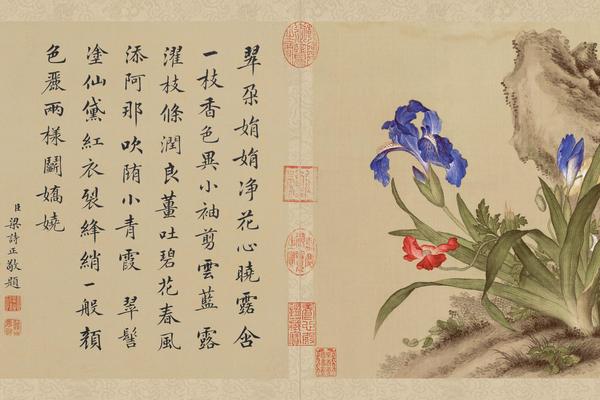 翠朶娟娟净花心曉露含
一枝香色異小袖剪雲藍露
濯枝條潤良薑吐碧花春風
添阿那吹陏小青霞 翠髻
塗仙黛紅衣裂絳綃一般顏
色麗兩樣鬭嬌嬈
臣梁詩正敬題